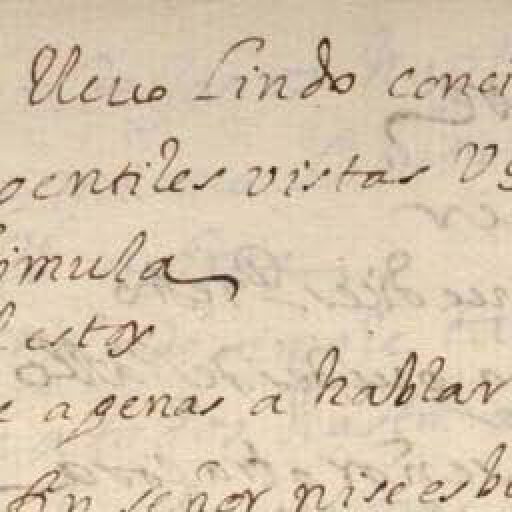 llevo lindo conci
gentiles vistas V
simula
estoy
e agenas a hablar
fin señor ni se es